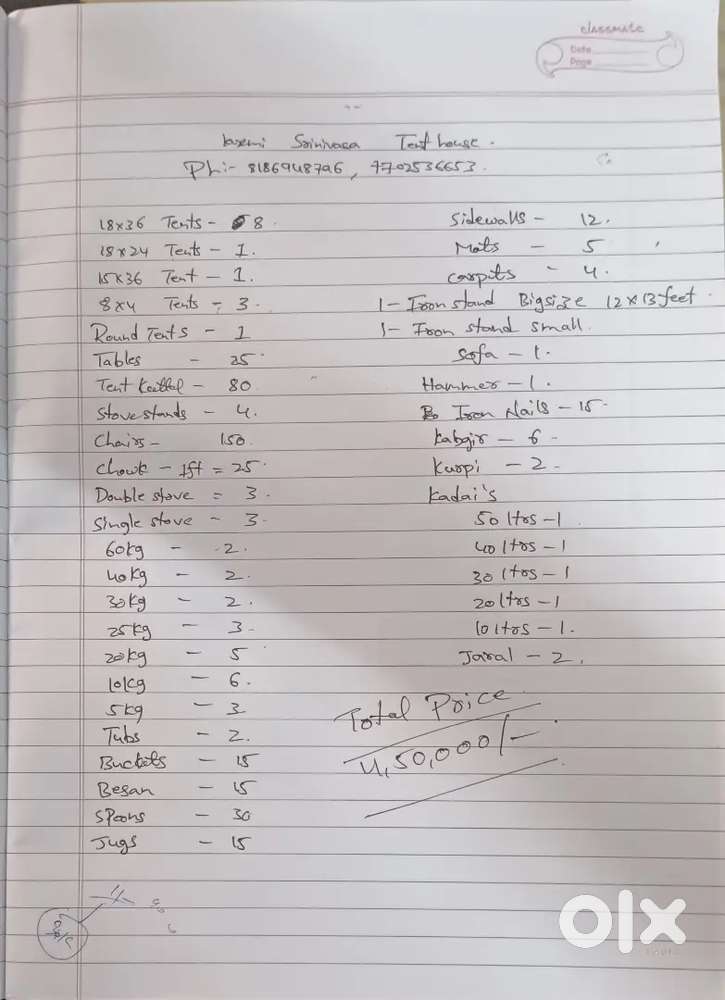 classmate
Date
Page
Laxmi Srinivasa Tent house.
Ph:- 8186948796, 7702536653.
18x36 Tents - 8
18x24 Tents - 1.
15x36 Tent - 1.
8x4 Tents - 3.
Round Tents - 1
Tables - 25.
Tent - 80
Stove stands - 4.
Chairs - 150.
Chowk - 1ft = 25.
Double stove = 3.
Single stove - 3.
60kg - 2.
40kg - 2.
30kg - 2.
25kg - 3.
20kg - 5
10kg - 6.
5kg - 3
Tubs - 2.
Buckets - 15
Besan - 15
Spoons - 30
Jugs - 15
Sidewalls - 12.
Mats - 5
Carpits - 4.
1 - Iron stand Bigsize 12x13 feet
1 - Iron stand small.
Sofa - 1.
Hammer - 1.
Iron Nails - 15.
Kabgir - 6
Kurpi - 2.
Kadai's
50 ltrs - 1
40 ltrs - 1
30 ltrs - 1
20 ltrs - 1
10 ltrs - 1.
Jaral - 2.
Total Price
4,50,000/-
olx